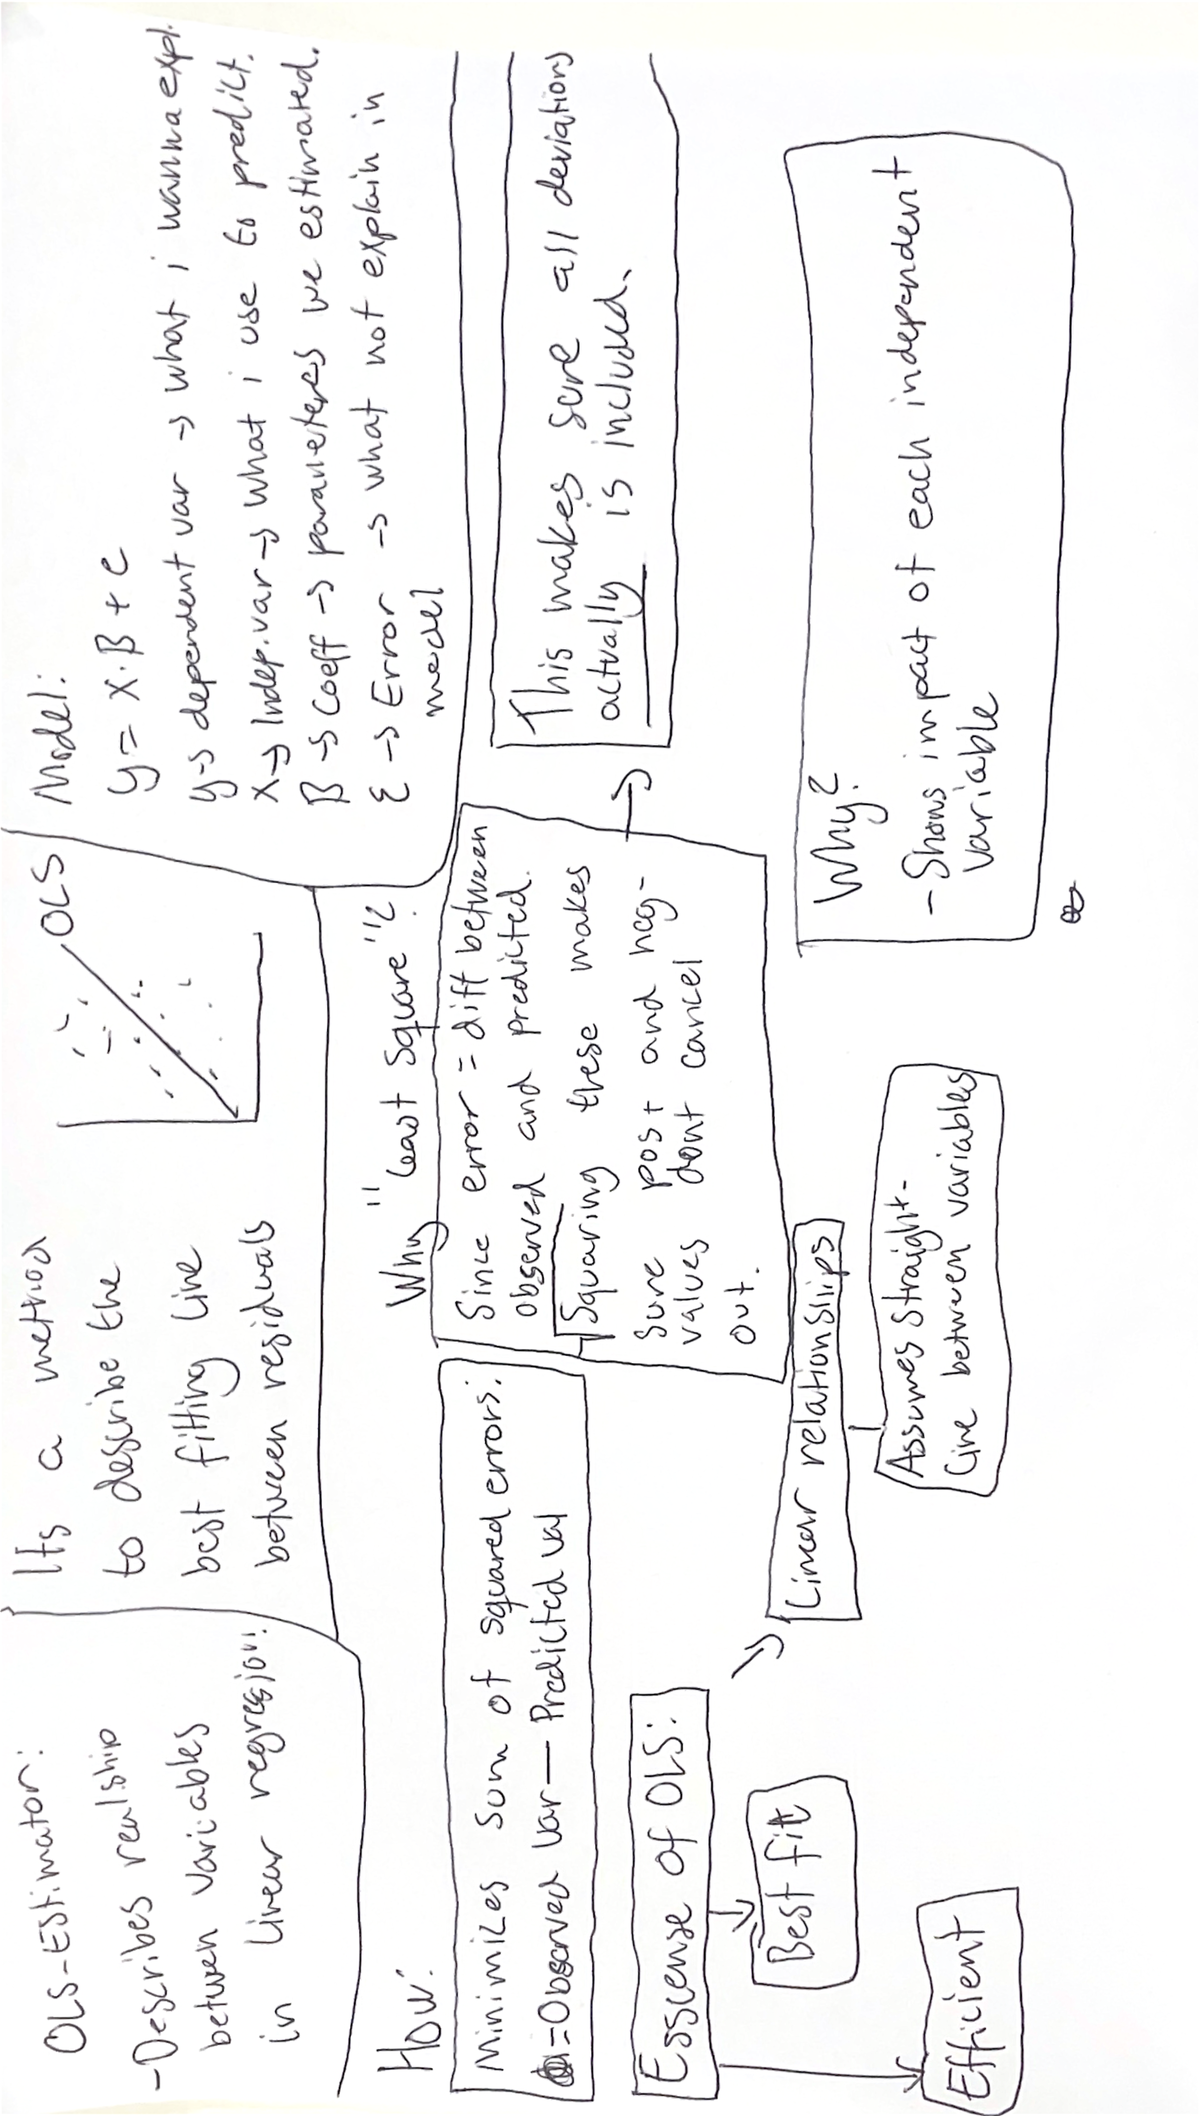 OLS-Estimator:
-Describes realship
betwen variables
in linear regression:
Its a method
to describe the
best fitting line
between residuals
OLS
Model:
y = x · β + e
y → dependent var → what i wanna expl.
x → Indep.var → what i use to predict.
β → coeff → parameteres we estimated.
ε → Error → what not explain in
model
How:
Minimizes sum of squared errors:
=Observed var - Predicted val
Why "Least Square"?
Since error = diff between
observed and predicted.
Squaring these makes
sure post and neg-
values dont cancel
out.
→
This makes sure all deviations
actually is included.
Esscense of OLS:
Best fit
Efficient
Linear relationships
Assumes straight-
line between variables
Why?
- Shows impact of each independent
variable